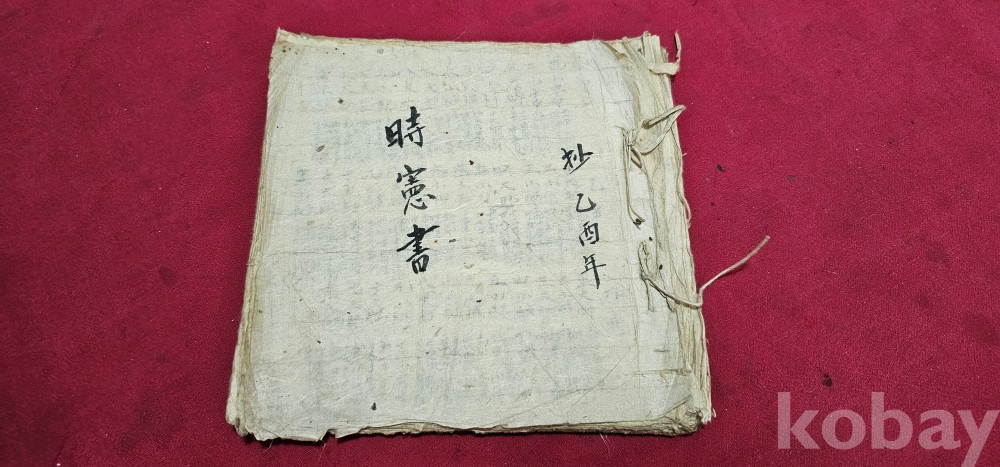 抄乙酉年
時憲書
kobay